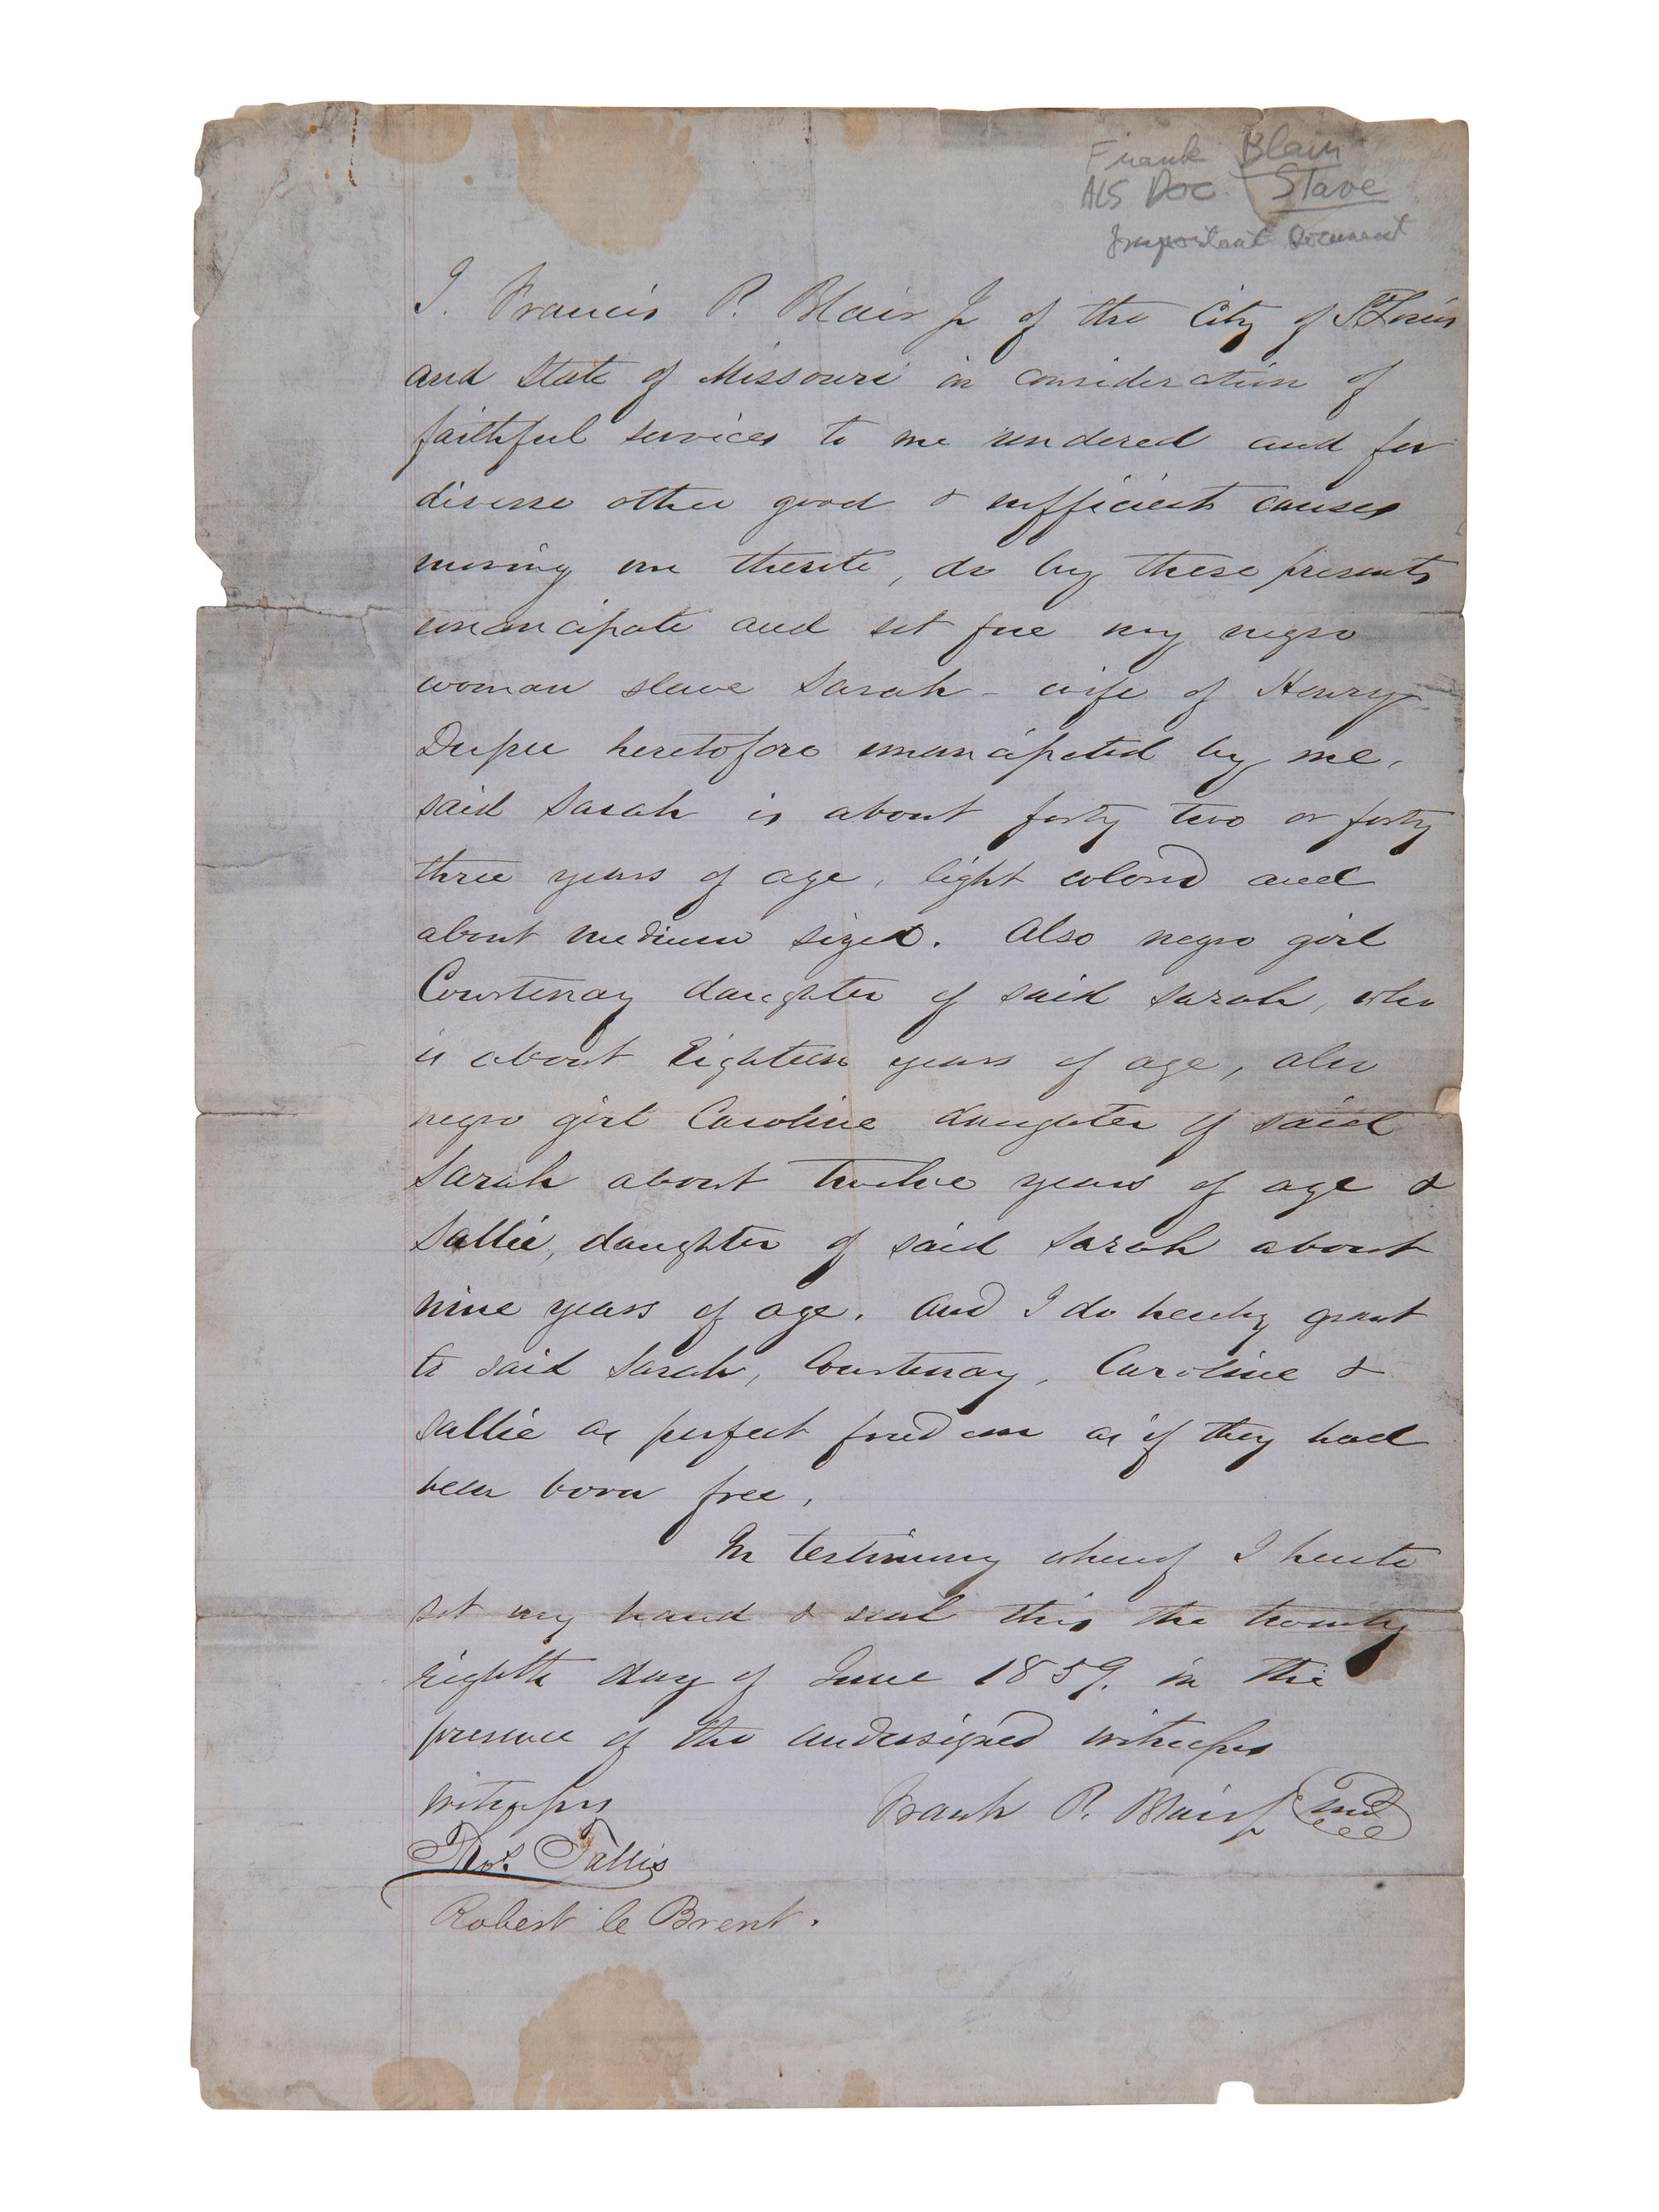 Frank Blair
ALS Doc. Slave
Important Document
I. Francis P. Blair Jr of the City of St Louis
and State of Missouri in consideration of
faithful services to me rendered and for
diverse other good & sufficient causes
moving me thereto, do by these presents
emancipate and set free my negro
woman slave Sarah - wife of Henry
Dupee heretofore emancipated by me,
said Sarah is about forty two or forty
three years of age, light colored and
about medium sized. Also negro girl
Courtenay daughter of said Sarah, who
is about Eighteen years of age, also
negro girl Caroline daughter of said
Sarah about twelve years of age &
Sallie, daughter of said Sarah about
nine years of age. And I do hereby grant
to said Sarah, Courtenay, Caroline &
Sallie as perfect freedom as if they had
been born free.
In testimony whereof I hereto
set my hand & seal this the twenty
eighth day of June 1859. in the
presence of the undersigned witnesses
witnesses
Frank P. Blair Jr Seal
Thos. Tallis
Robert le Brent.